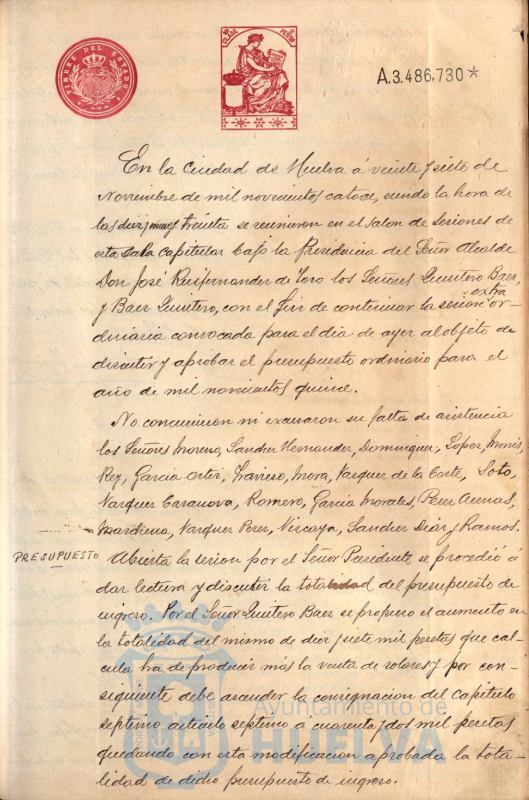 TIMBRE DEL ESTADO
A.3.486.730*
En la Ciudad de Huelva á veinte y siete de
Noviembre de mil novecientos catorce, siendo la hora de
las diez y treinta se reunieron en el salon de Sesiones de
esta Casa Capitular bajo la Presidencia del Señor Alcalde
Don José Ruifernandez de Toro los Señores Quintero Baez,
y Baez Quintero, con el fin de continuar la sesion extraor-
dinaria convocada para el dia de ayer al objeto de
discutir y aprobar el presupuesto ordinario para el
año de mil novecientos quince.
No concurrieron ni excusaron su falta de asistencia
los Señores Moreno, Sanchez Hernandez, Dominguez, López, Monis,
Rey, Garcia Ortiz, Travieso, Mora, Vazquez de la Corte, Soto,
Vazquez Casanova, Romero, Garcia Morales, Perez Arenas,
Marchena, Vazquez Perez, Vizcaya, Sanchez Diaz y Ramos.
PRESUPUESTO
Abierta la sesion por el Señor Presidente se procedió á
dar lectura y discutir la totalidad del presupuesto de
ingreso. Por el Señor Quintero Baez se propuso el aumento en
la totalidad del mismo de diez y siete mil pesetas que cal-
cula ha de producir más la venta de solares y por con-
siguiente debe ascender la consignacion del capítulo
septimo artículo septimo á cuarenta y dos mil pesetas
quedando con esta modificacion aprobada la tota-
lidad de dicho presupuesto de ingreso.
Ayuntamiento de
HUELVA